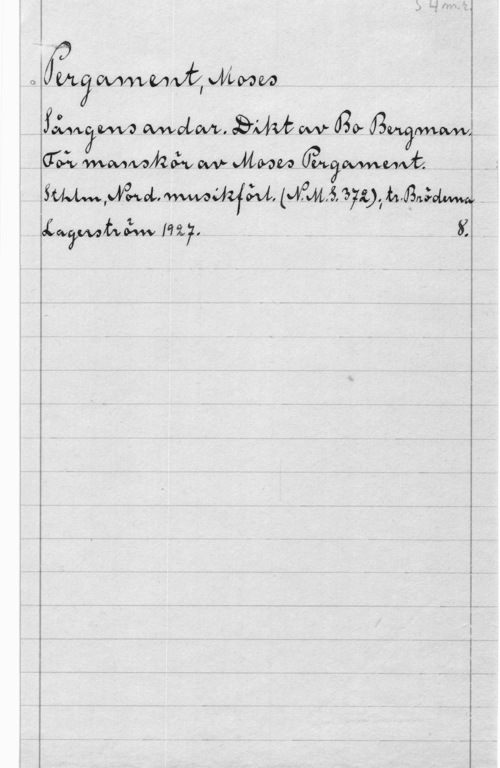 S 4 m.k.
Pergament, Moses
Sångens andar. Dikt av Bo Bergman.
För manskör av Moses Pergament.
Sthlm, Nord. musikförl. (N.M.S. 372), tr. Bröderna
Lagerström 1927. 8.